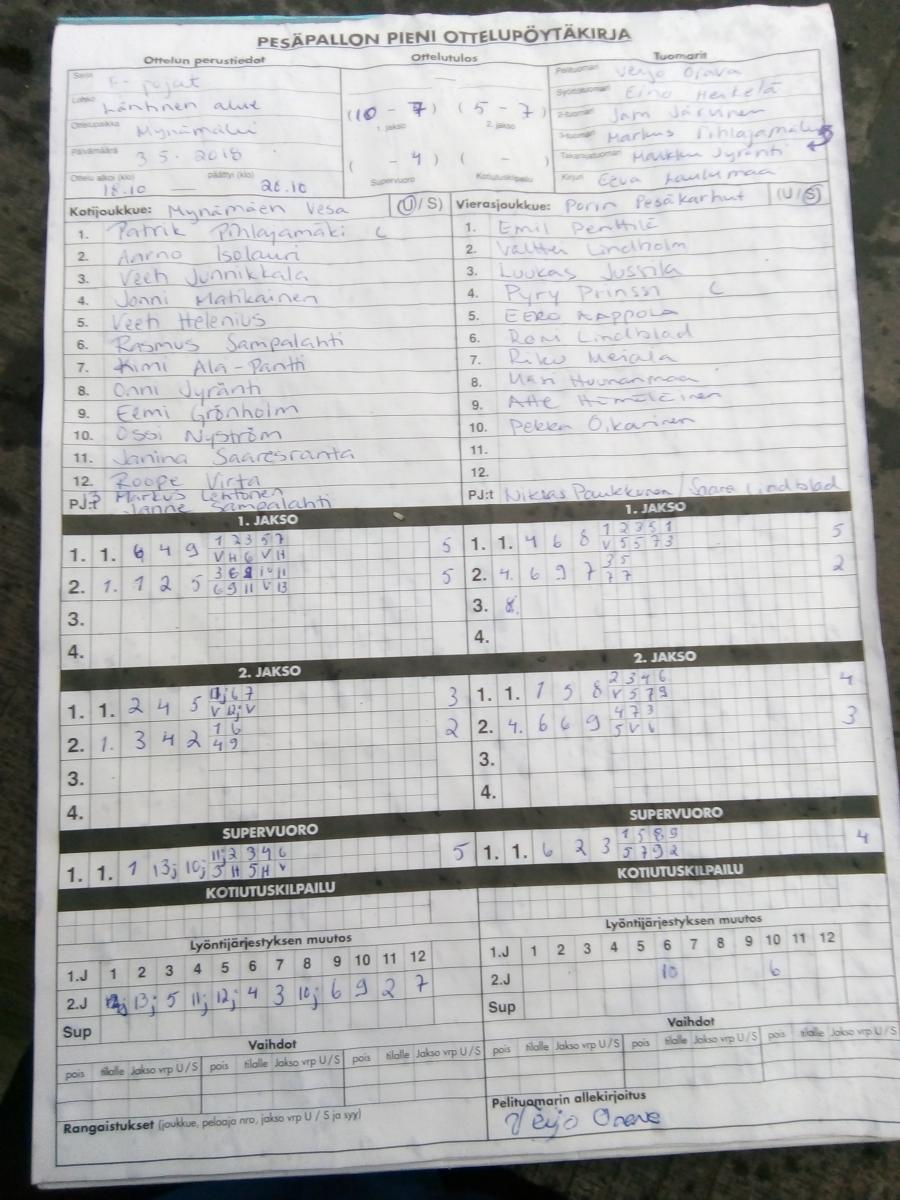 PESÄPALLON PIENI OTTELUPÖYTÄKIRJA
Ottelun perustiedot Ottelutulos Tuomarit
Sarja F-pojat
Lohko Läntinen alue
Ottelupaikka Mynämäki
Päivämäärä 3 5. 2018
Ottelu alkoi (klo) 18.10 — päättyi (klo) 20.10
(10 - 7) (5 - 7)
1. jakso 2. jakso
( - 4) ( - )
Supervuoro Kotiutuskilpailu
Pelituomari Veijo Ojava
Syöttötuomari Eino Heikelä
2-tuomari Jani Järvinen
3-tuomari Markus Pihlajamäki
Takarajatuomari Markku Jyränti
Kirjuri Eeva Laulumaa
Kotijoukkue: Mynämäen Vesa (U/S)
1. Patrik Pihlajamäki C
2. Aarno Isolauri
3. Veeti Junnikkala
4. Jonni Matikainen
5. Veeti Helenius
6. Rasmus Sampalahti
7. Kimi Ala-Pantti
8. Onni Jyränti
9. Eemi Grönholm
10. Ossi Nyström
11. Janina Saaresranta
12. Roope Virta
PJ:t Markus Lehtonen
Janne Sampalahti
Vierasjoukkue: Porin Pesäkarhut (U/S)
1. Emil Penttilä
2. Valtteri Lindholm
3. Luukas Jussila
4. Pyry Prinssi C
5. EERO KAPPOLA
6. Roni Lindblad
7. Riko Meiala
8. Huunanmaa
9. Atte Hämäläinen
10. Pekka Oikarinen
11.
12.
PJ:t Niklas Paukkunen / Saara Lindblad
1. JAKSO 1. JAKSO
1. 1. 6 4 9 1 2 3 5 7 5
V H 6 V H
2. 1. 1 2 5 5
3.
4.
1. 1. 4 6 8 1 2 3 5 1 5
V 5 5 7 3
2. 4. 6 9 7 3 5 2
7 7
3. 8.
4.
2. JAKSO 2. JAKSO
1. 1. 2 4 5 3
2. 1. 3 4 2 1 6 2
4 9
3.
4.
1. 1. 1 5 8 2 3 4 6 4
V 5 7 9
2. 4. 6 6 9 4 7 3 3
5 V V
3.
4.
SUPERVUORO SUPERVUORO
1. 1. 1 13; 10; 11; 2 3 4 6 5
5 H 5 H V
1. 1. 6 2 3 1 5 8 9 4
5 7 9 2
KOTIUTUSKILPAILU KOTIUTUSKILPAILU
Lyöntijärjestyksen muutos
1.J 1 2 3 4 5 6 7 8 9 10 11 12
2.J 13; 5 11; 12; 4 3 10; 6 9 2 7
Sup
Lyöntijärjestyksen muutos
1.J 1 2 3 4 5 6 7 8 9 10 11 12
2.J 10 6
Sup
Vaihdot Vaihdot
pois tilalle Jakso vrp U/S pois tilalle Jakso vrp U/S pois tilalle Jakso vrp U/S
pois tilalle Jakso vrp U/S pois tilalle Jakso vrp U/S pois tilalle Jakso vrp U/S
Rangaistukset (joukkue, pelaaja nro, jakso vrp U / S ja syy)
Pelituomarin allekirjoitus
Veijo